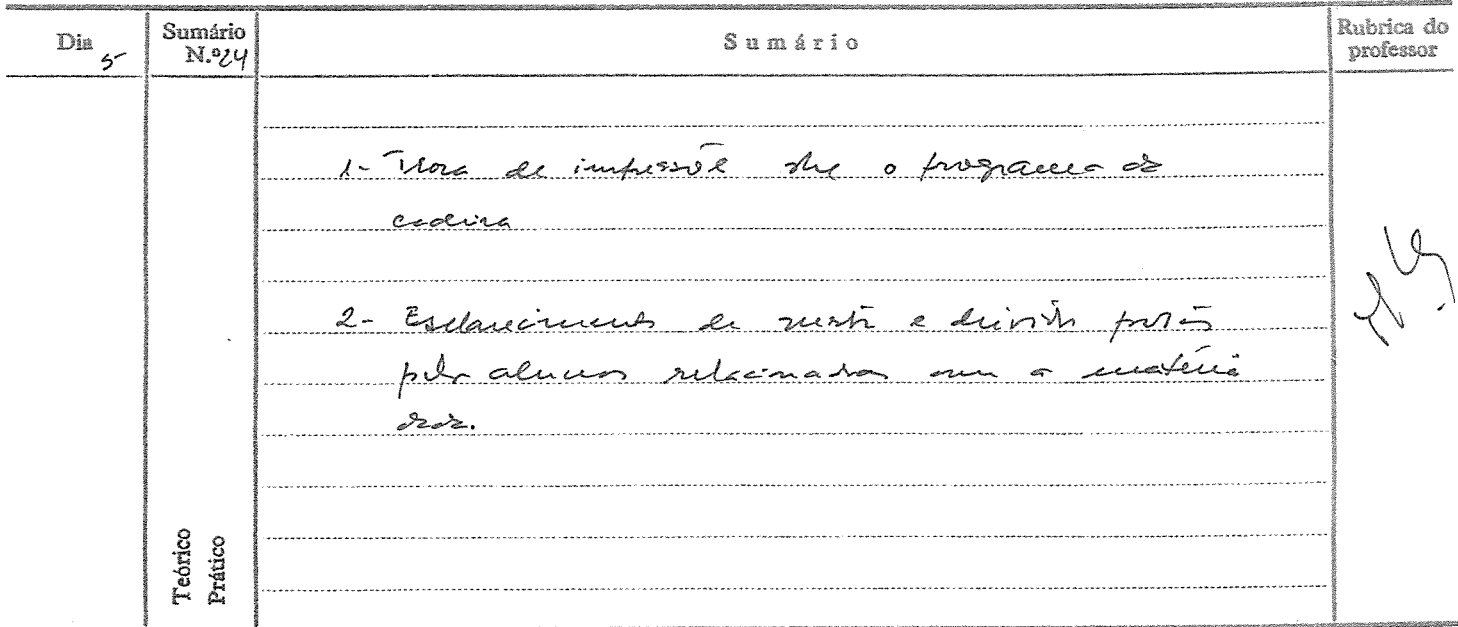 Dia 5
Sumário N.º 24
Sumário
Rubrica do professor
1- Troca de impressões sobre o programa da
cadeira
2- Esclarecimento de questões e dúvidas postas
pelos alunos relacionadas com a matéria
dada.
Teórico
Prático